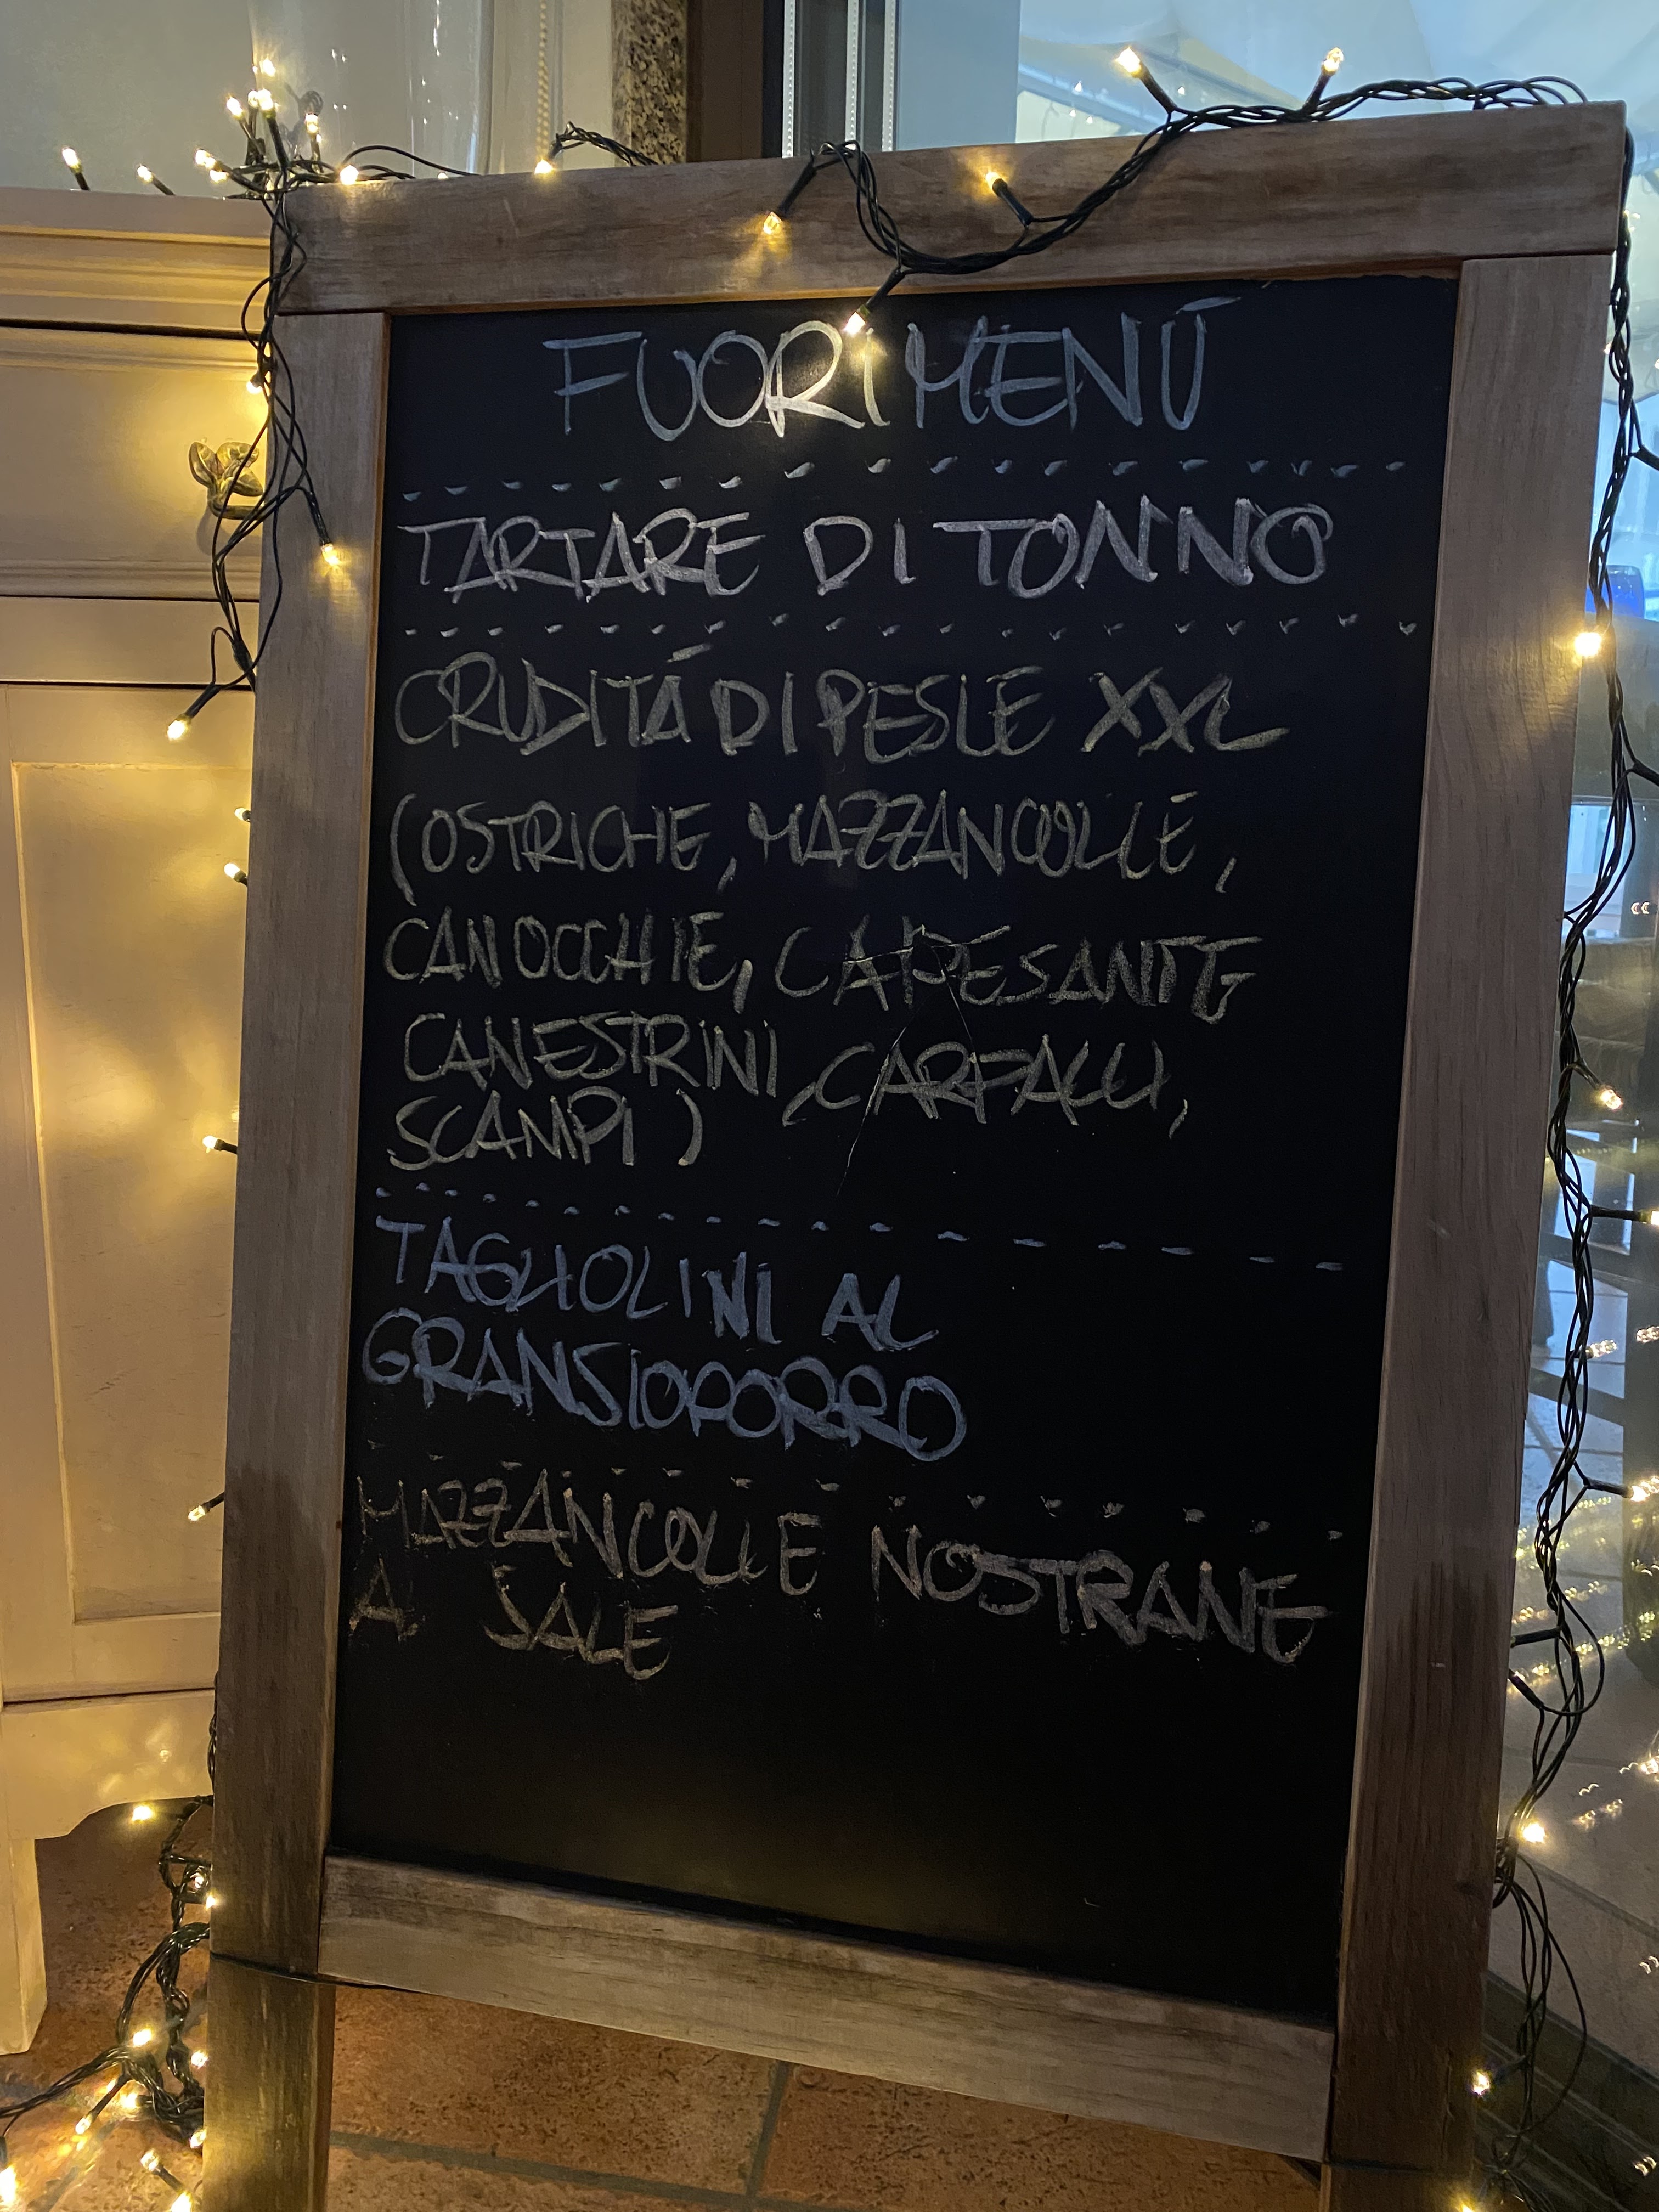 FUORI MENÚ
TARTARE DI TONNO
CRUDITÁ DI PESCE XXL
(OSTRICHE, MAZZANCOLLE,
CANOCCHIE, CAPESANTE
CANESTRINI, CARPACCI,
SCAMPI)
TAGLIOLINI AL
GRANSIOPORRO
MAZZANCOLLE NOSTRANE
AL SALE